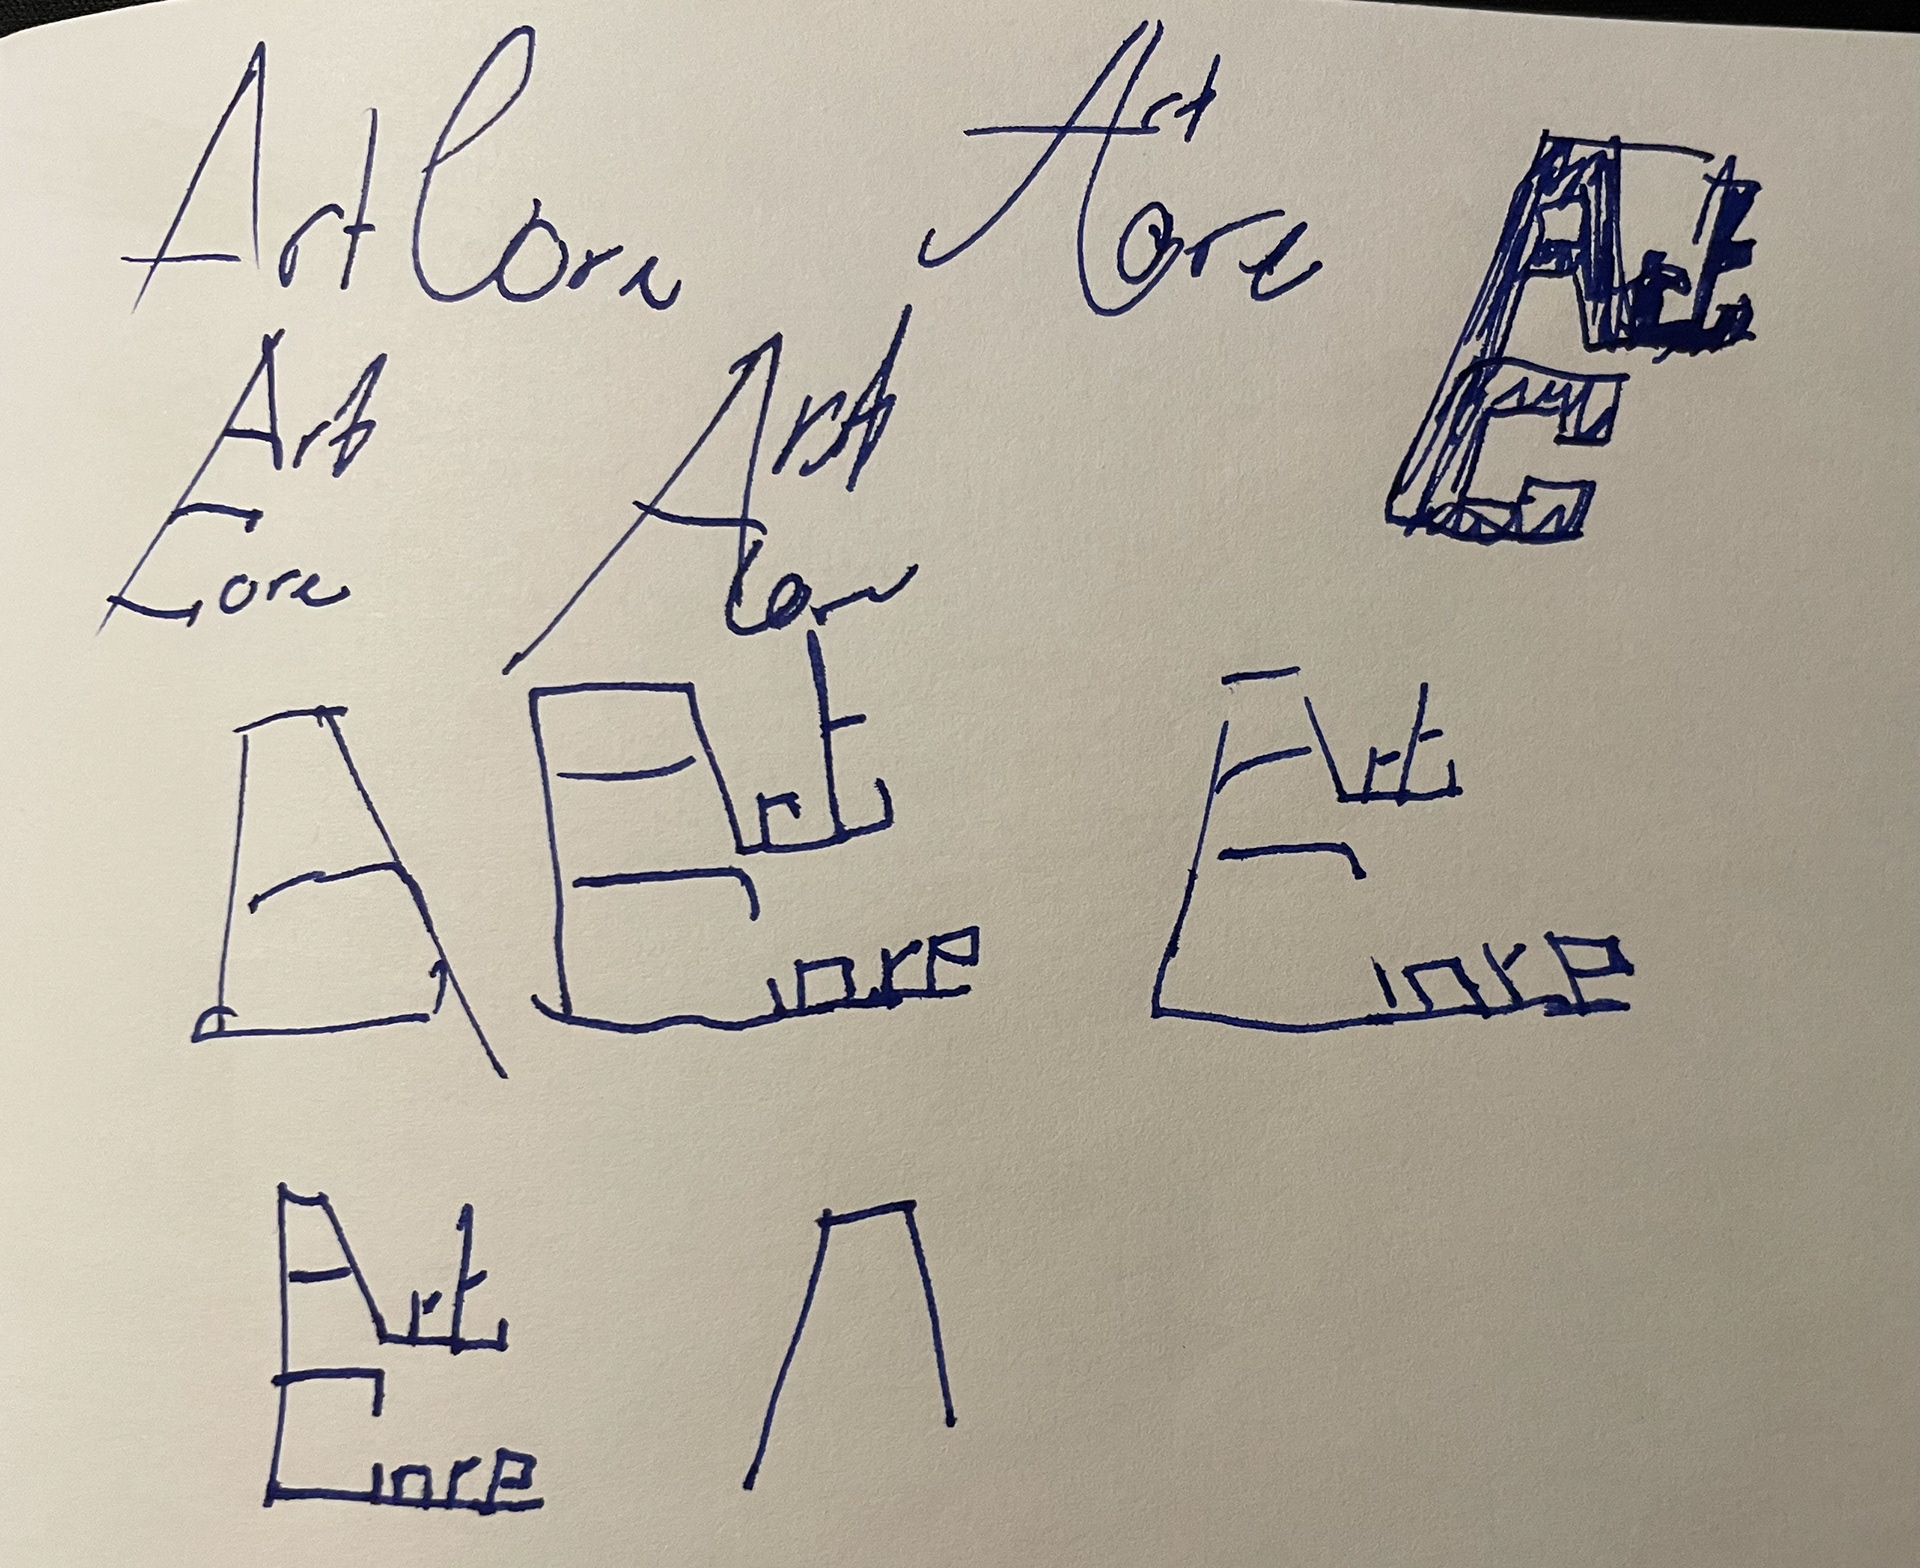 Art Core
Art
Core
Art
Art
Core
Art
Core
A
Art
Core
Art
Core
Art
Core